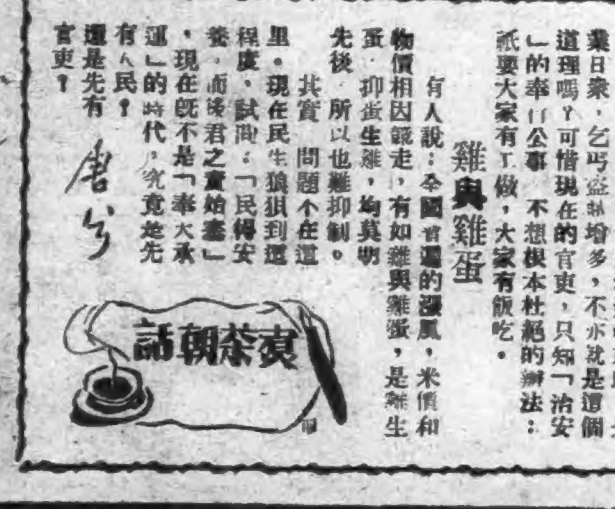 業日衆，乞丐盜賊增多，不亦就是這個
道理嗎？可惜現在的官吏，只知「治安
」的奉行公事 不想根本杜絕的辦法：
祇要大家有工做，大家有飯吃。
雞與雞蛋
有人說：全國普遍的漲風，米價和
物價相因競走，有如雞與雞蛋，是雞生
蛋 抑蛋生雞，均莫明
先後 所以也難抑制。
其實 問題不在這
里。現在民生狼狽到這
程度，試問：「民得安
養，而後君之實始盡」
，現在既不是「奉天承
運」的時代，究竟是先
有人民？
還是先有
官吏？
茶朝話